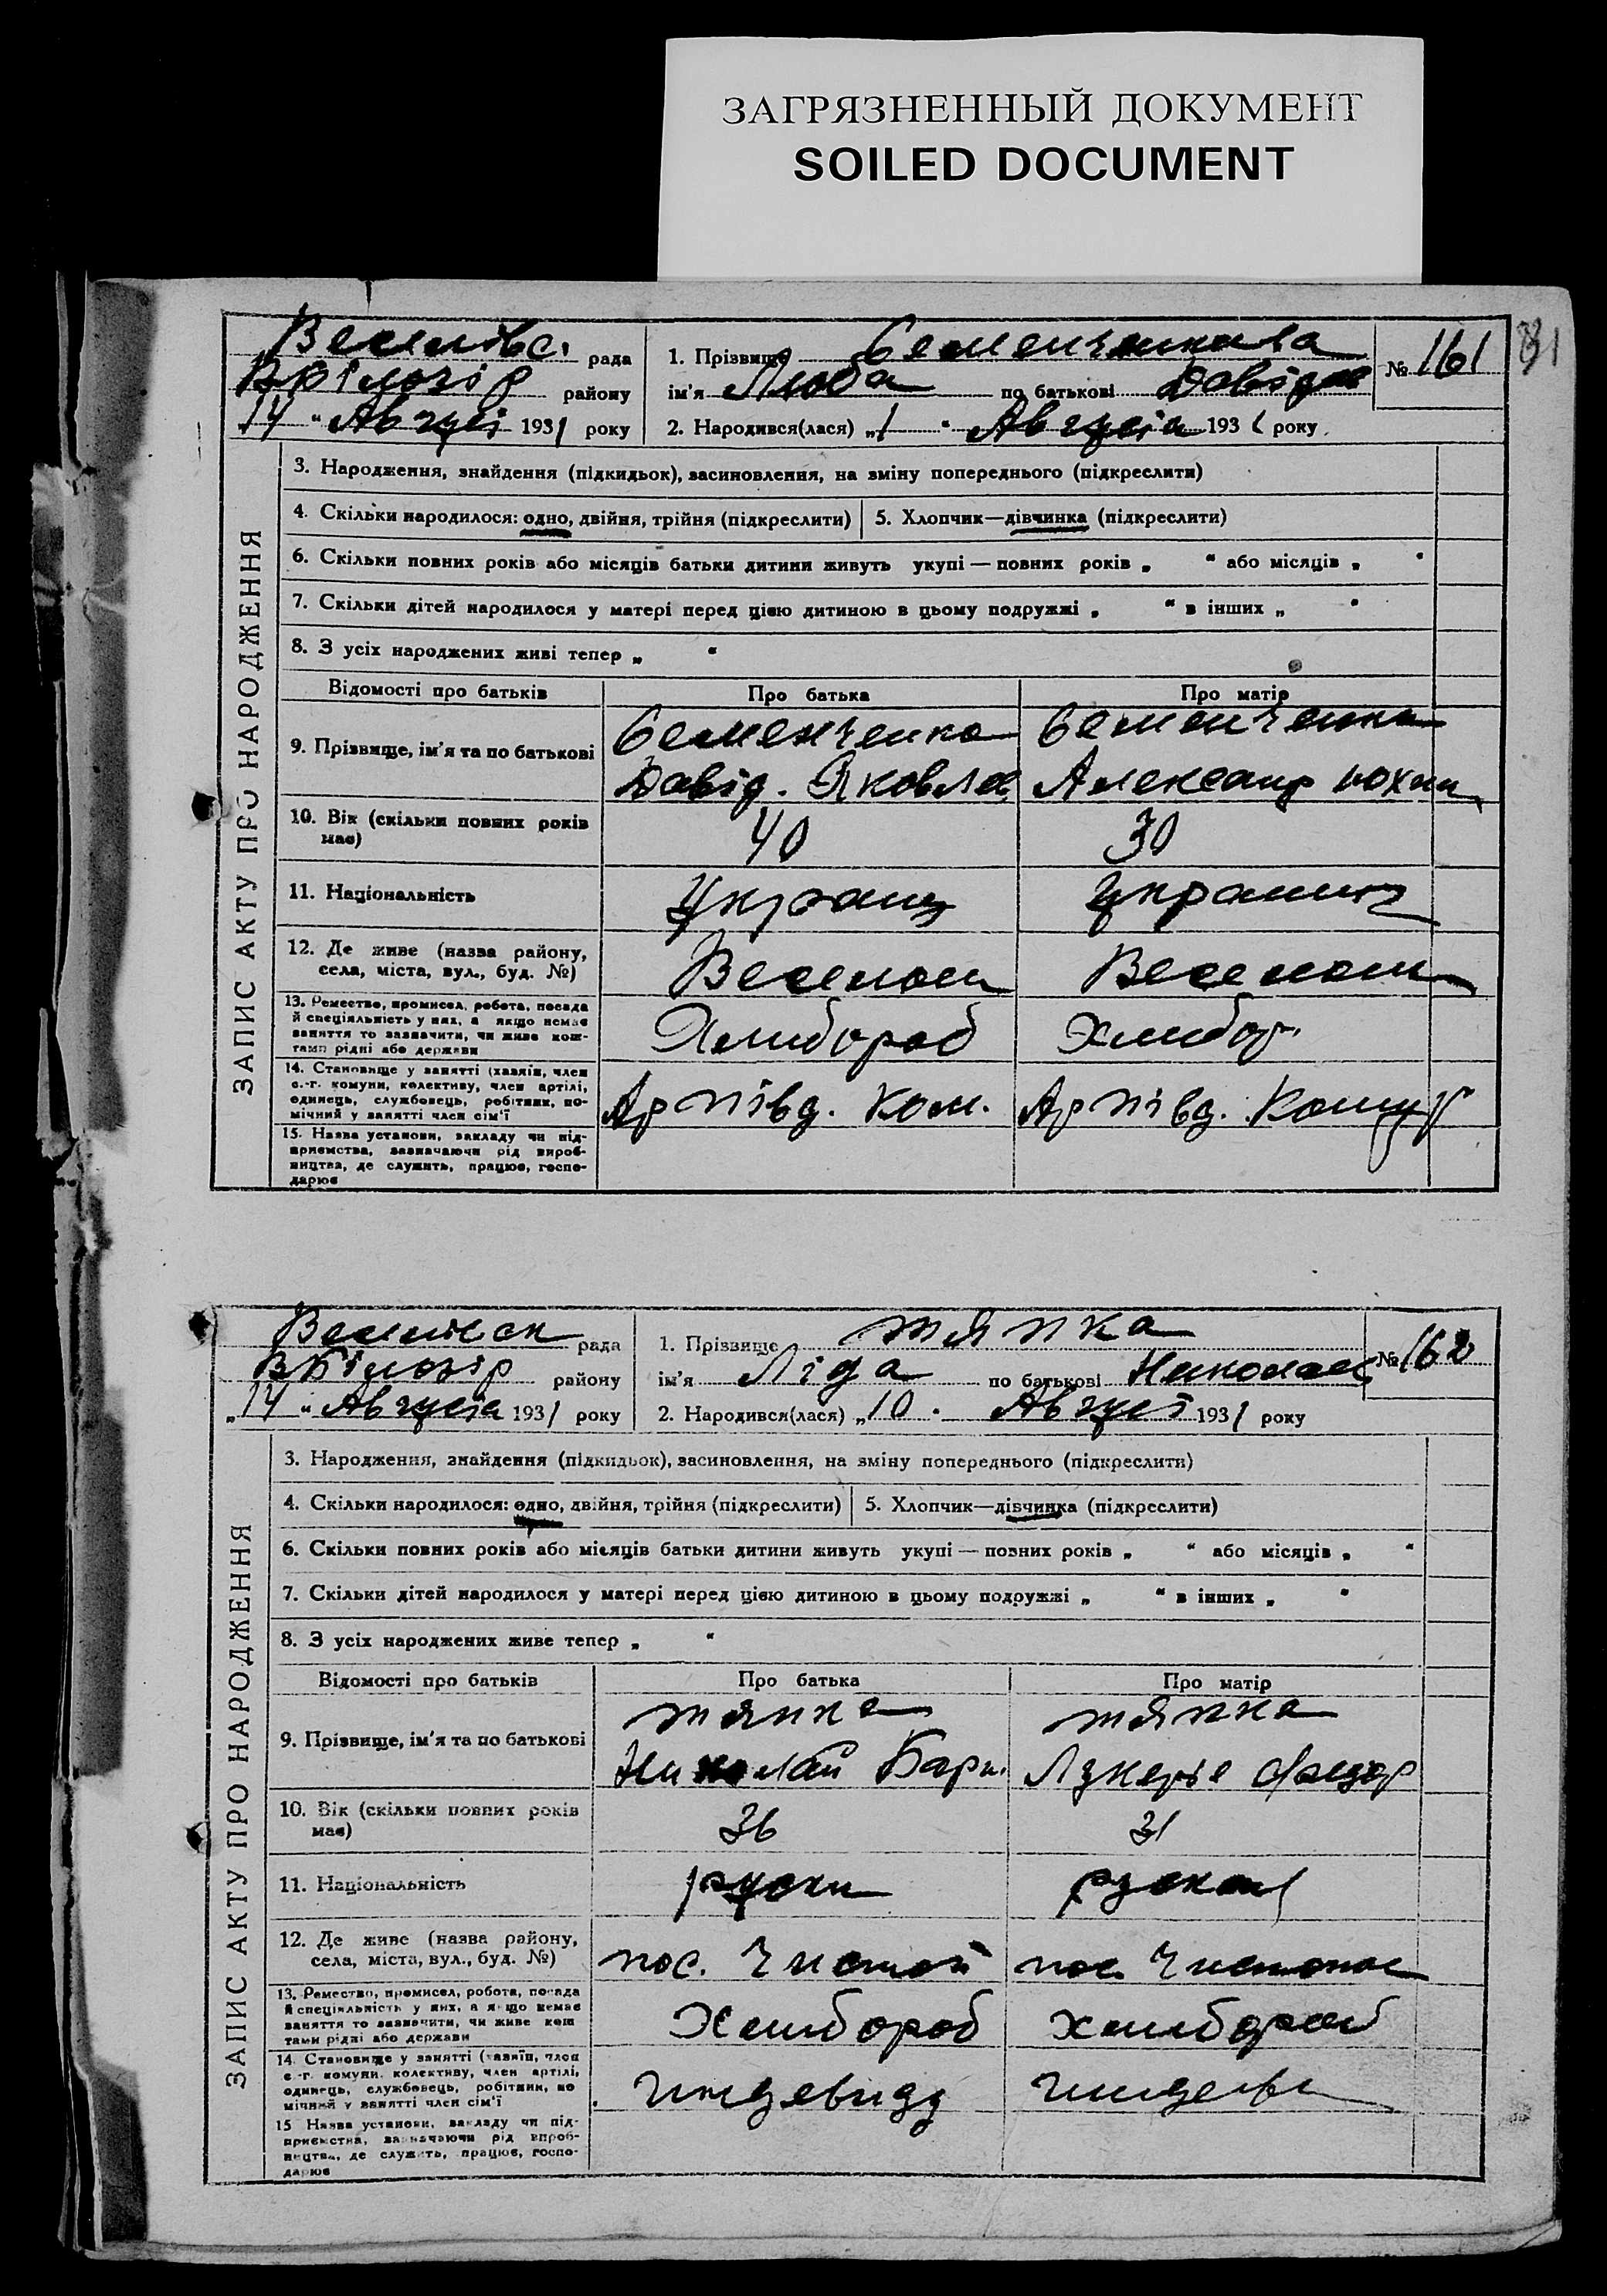 ЗАГРЯЗНЕННЫЙ ДОКУМЕНТ
SOILED DOCUMENT
81
ЗАПИС АКТУ ПРО НАРОДЖЕННЯ
Веселівс. рада
району
14 " Авгусі 1931 року
1. Прізвище
ім'я Люба по батькові Давідов
2. Народився(лася) „1 " Августа 1931 року
№ 161
3. Народження, знайдення (підкидьок), засиновлення, на зміну попереднього (підкреслити)
4. Скільки народилося: одно, двійня, трійня (підкреслити) 5. Хлопчик—дівчинка (підкреслити)
6. Скільки повних років або місяців батьки дитини живуть укупі — повних років „ " або місяців „ "
7. Скільки дітей народилося у матері перед цією дитиною в цьому подружжі „ " в інших „ "
8. З усіх народжених живі тепер „ "
Відомості про батьків Про батька Про матір
9. Прізвище, ім'я та по батькові Семенченко Семенченко
Давід. Яковлев Александр
10. Вік (скільки повних років має) 40 30
11. Національність Украинц Украинц
12. Де живе (назва району, села, міста, вул., буд. №)
13. Ремество, промисел, робота, посада й спеціяльність у них, а якщо немає заняття то зазначити, чи живе коштами рідні або держави Хлибороб Хлибор
14. Становище у занятті (хазяїн, член с.-г. комуни, колективу, член артілі, одинець, службовець, робітник, помічний у занятті член сім'ї Ар півд. Ком. Ар півд.
15. Назва установи, закладу чи підприємства, зазначаючи рід виробництва, де служить, працює, господарює
ЗАПИС АКТУ ПРО НАРОДЖЕННЯ
рада
району
„14 " Августа 1931 року
1. Прізвище тяпка
ім'я Ліда по батькові Николаев
2. Народився(лася) „10 " Авгусі 1931 року
№ 162
3. Народження, знайдення (підкидьок), засиновлення, на зміну попереднього (підкреслити)
4. Скільки народилося: одно, двійня, трійня (підкреслити) 5. Хлопчик—дівчинка (підкреслити)
6. Скільки повних років або місяців батьки дитини живуть укупі — повних років „ " або місяців „ "
7. Скільки дітей народилося у матері перед цією дитиною в цьому подружжі „ " в інших „ "
8. З усіх народжених живе тепер „ "
Відомості про батьків Про батька Про матір
9. Прізвище, ім'я та по батькові тяпка тяпка
Николай
10. Вік (скільки повних років має) 36 31
11. Національність руски
12. Де живе (назва району, села, міста, вул., буд. №) пос. пос.
13. Ремество, промисел, робота, посада й спеціяльність у них, а якщо немає заняття то зазначити, чи живе коштами рідні або держави Хлибороб хлибороб
14. Становище у занятті (хазяїн, член с.-г. комуни, колективу, член артілі, одинець, службовець, робітник, помічний у занятті член сім'ї
15 Назва установи, закладу чи підприємства, зазначаючи рід виробництва, де служить, працює, господарює